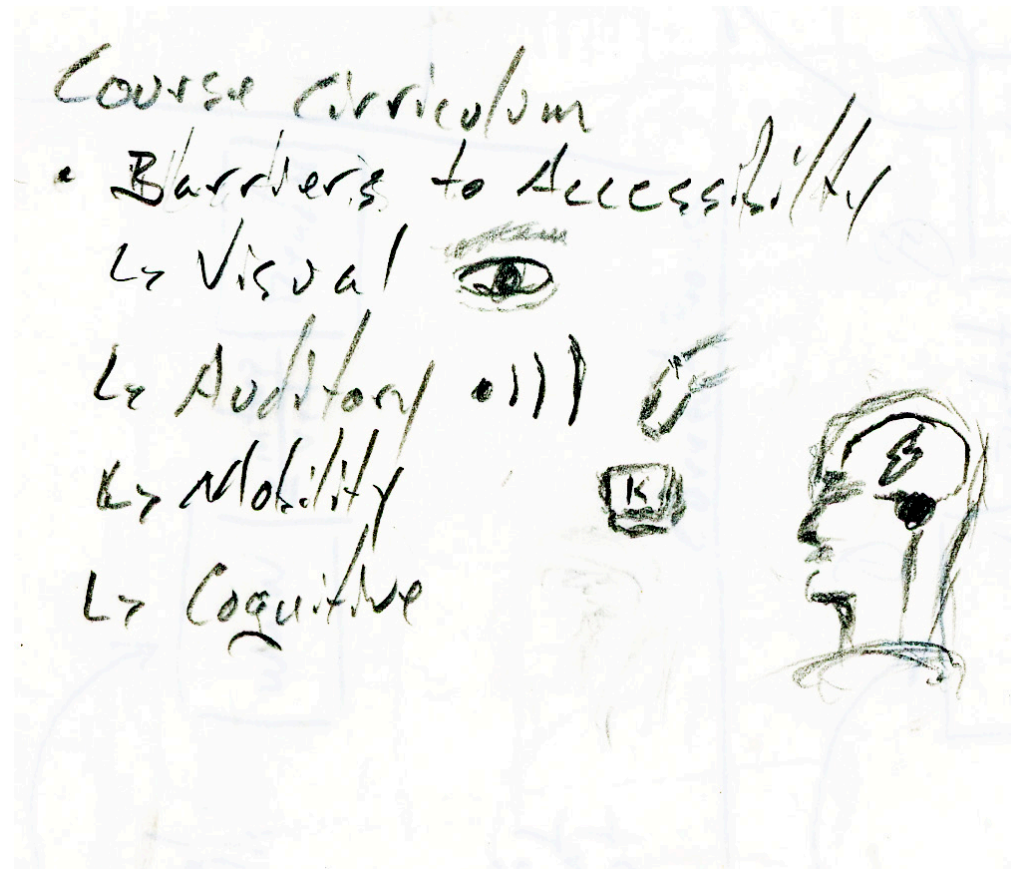 Course Cirriculum
• Barriers to Accessibilty
↳ Visual
↳ Auditory
↳ Mobility
K
↳ Cognitive